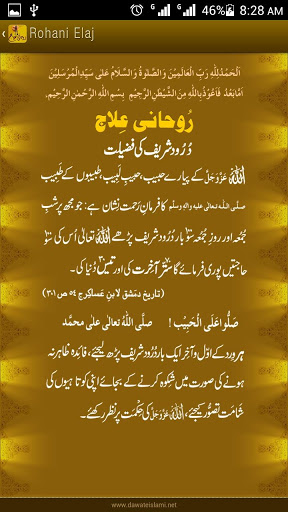 46% 8:28 AM
Rohani Elaj
اَلْحَمْدُ لِلّٰہِ رَبِّ الْعَالَمِیْنَ وَالصَّلٰوۃُ وَالسَّلَامُ عَلٰی سَیِّدِ الْمُرْسَلِیْنَ
اَمَّا بَعْدُ فَاَعُوْذُ بِاللّٰہِ مِنَ الشَّیْطٰنِ الرَّجِیْمِ بِسْمِ اللّٰہِ الرَّحْمٰنِ الرَّحِیْمِ
رُوحانی عِلاج
دُرُود شریف کی فضیلت
اللّٰہ عَزَّوَجَلَّ کے پیارے حبیب، حبیبِ لبیب، طبیبوں کے طبیب
صلَّی اللہ تعالٰی علیہ واٰلہٖ وسلَّم کا فرمانِ رَحمت نشان ہے: جو مجھ پر شبِ
جمعہ اور روزِ جُمُعہ سو بار دُرُود شریف پڑھے اللّٰہ تعالٰی اُس کی سو
حاجتیں پوری فرمائے گا ستّر آخِرت کی اور تیس دنیا کی۔
(تاریخ دمشق لابنِ عساکِر ج۵۴ ص ۳۰۱)
صَلُّوا عَلَی الْحَبِیْب! صلَّی اللہُ تعالٰی علٰی محمَّد
ہر وِرد کے اوّل و آخِر ایک بار دُرُود شریف پڑھ لیجئے، فائدہ ظاہر نہ
ہونے کی صورت میں شِکوہ کرنے کے بجائے اپنی کوتاہیوں کی
شامَت تصوُّر کیجئے، اللّٰہ عَزَّوَجَلَّ کی حِکمت پر نظر رکھئے۔
www.dawateislami.net